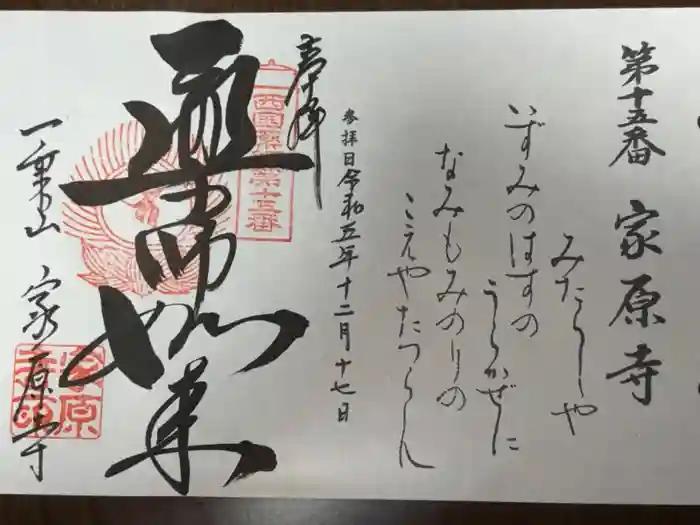 第十五番 家原寺
みたらしや
いずみのはすの
うらかぜに
なみもみのりの
こえやたつらん
参拝日令和五年十二月十七日
奉拝
西国薬師第十五番
薬師如来
一乗山 家原寺
家原寺印